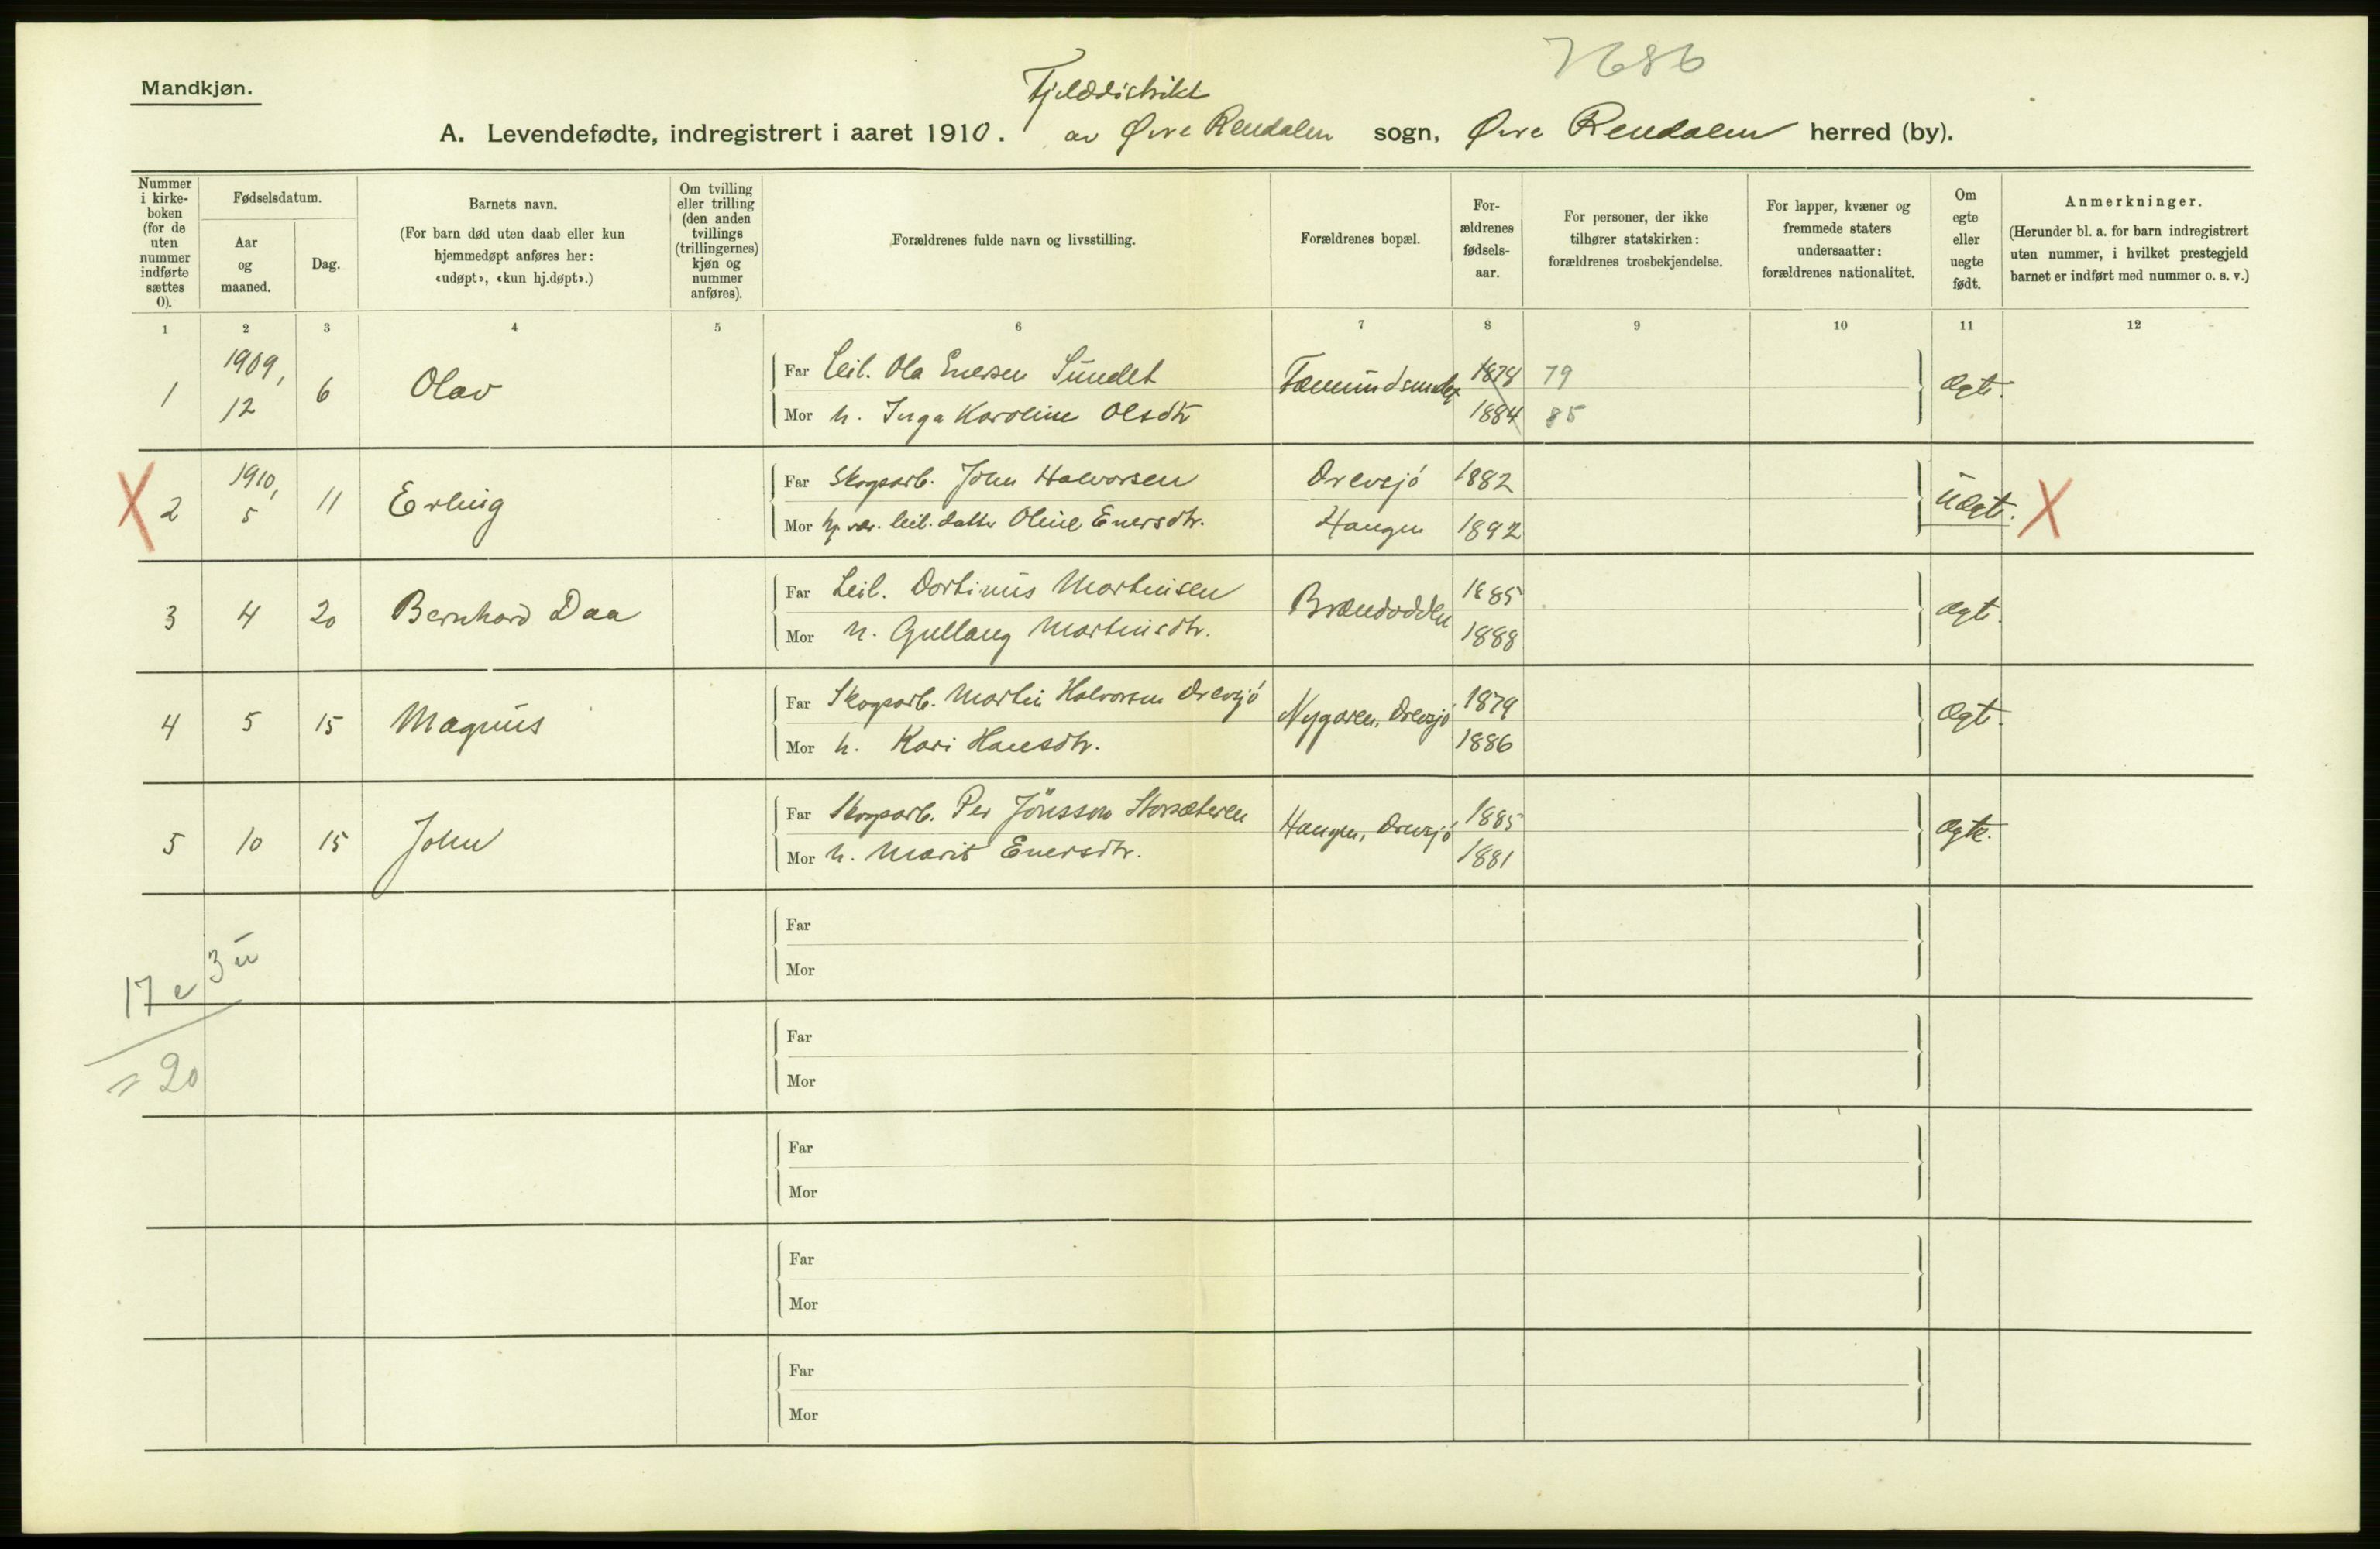 7686
Mandkjøn.
Fjelddistrikt
A. Levendefødte, indregistrert i aaret 1910. av Øvre Rendalen sogn, Øvre Rendalen herred (by).
Nummer i kirke-boken (for de uten nummer indførte sættes 0).
Fødselsdatum.
Aar og maaned.
Dag.
Barnets navn.
(For barn død uten daab eller kun hjemmedøpt anføres her: «udøpt», «kun hj.døpt».)
Om tvilling eller trilling (den anden tvillings (trillingernes) kjøn og nummer anføres).
Forældrenes fulde navn og livsstilling.
Forældrenes bopæl.
For-ældrenes fødsels-aar.
For personer, der ikke tilhører statskirken: forældrenes trosbekjendelse.
For lapper, kvæner og fremmede staters undersaatter: forældrenes nationalitet.
Om egte eller uegte født.
Anmerkninger.
(Herunder bl. a. for barn indregistrert uten nummer, i hvilket prestegjeld barnet er indført med nummer o. s. v.)
1 2 3 4 5 6 7 8 9 10 11 12
1 1909, 12 6 Olav Far Leil. Ola Enersen Sundet 1878 79 Ægte.
Mor h. Inga Karoline Olsdtr 1884 85
X 2 1910, 5 11 Erling Far Skogsarb. John Halvorsen Drevsjö 1882 Uægte. X
Mor leil. datter Oline Enersdtr. Haugen 1892
3 4 20 Bernhard Daa Far Leil. Dortinus Martinsen Brændodden 1885 Ægte.
Mor h. Gullaug Martinsdtr. 1888
4 5 15 Magnus Far Skogsarb. Martin Halvorsen Drevsjö Nygaren, Drevsjö 1879 Ægte.
Mor h. Kari Hansdtr. 1886
5 10 15 John Far Skogsarb. Per Jönsson Storsæteren Haugen, Drevsjö 1885 Ægte.
Mor h. Marit Enersdtr. 1881
Far
Mor
17 e 3 u
= 20
Far
Mor
Far
Mor
Far
Mor
Far
Mor